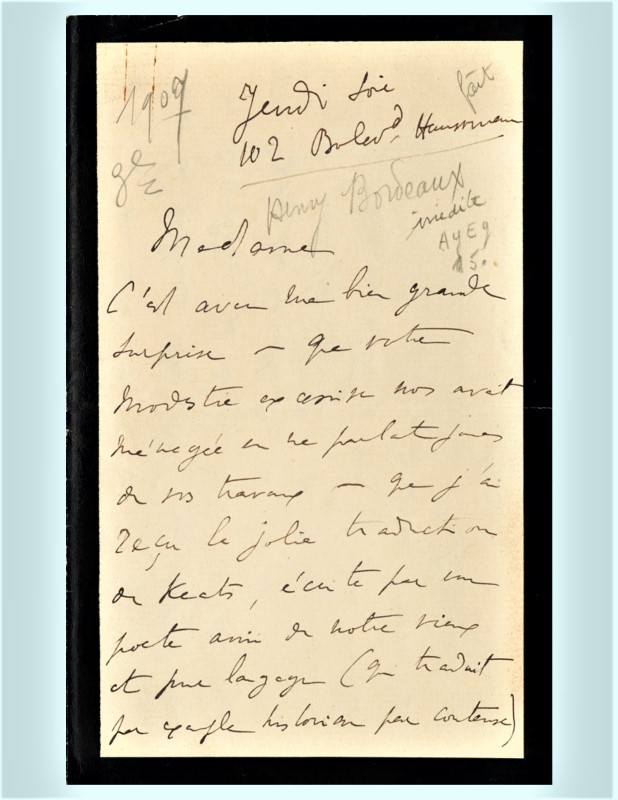 1907
fait
Jeudi soir
102 Boulevd. Haussmann
Henry Bordeaux
inédite
A y E g
15.
Madame
C'est avec une bien grande
surprise — que votre
modestie excessive nous avait
ménagée en ne parlant jamais
de vos travaux — que j'ai
reçu la jolie traduction
de Keats, écrite par un
poète ami de notre vieux
et pur langage (qui traduit
par exemple historian par conteuse)